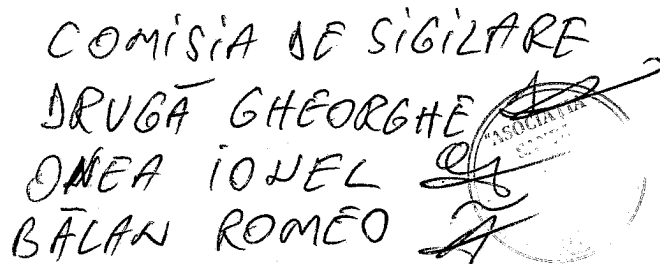 COMISIA DE SIGILARE
DRUGĂ GHEORGHE
ONEA IONEL
BĂLAN ROMEO
"ASOCIAȚIA